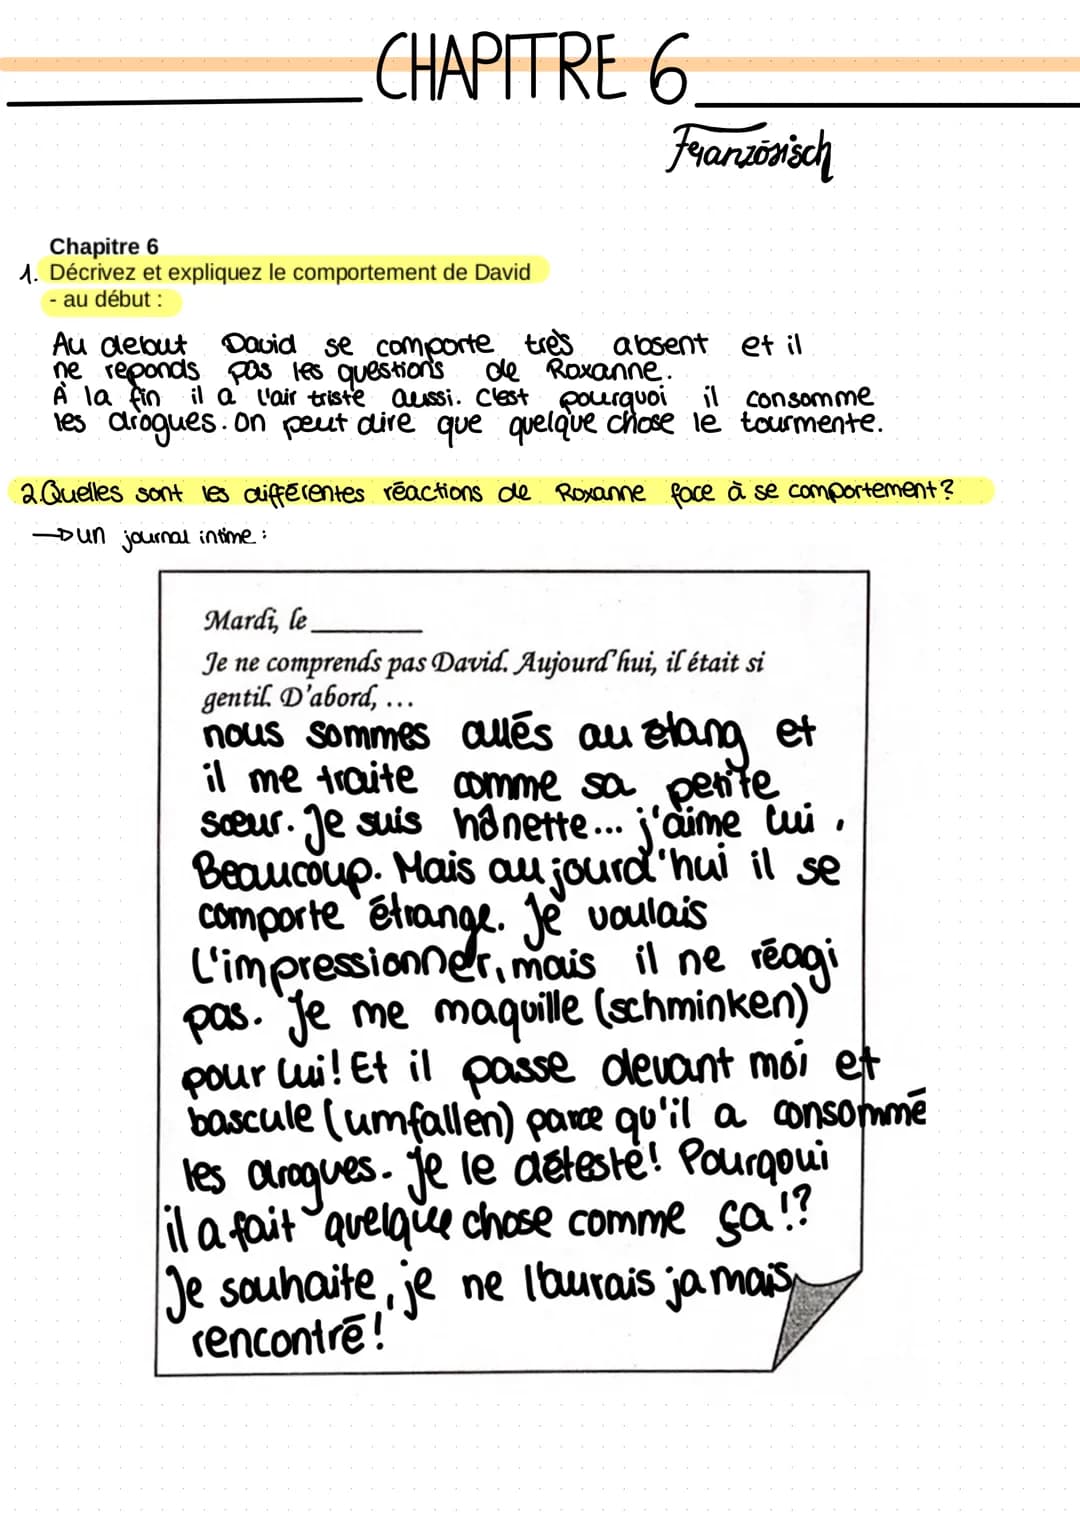 CHAPITRE 6
Französisch
Chapitre 6
1. Décrivez et expliquez le comportement de David
- au début :
Au debut David se comporte très absent et il
ne reponds pas les questions de Roxanne.
À la fin il a l'air triste aussi. C'est pourquoi il consomme
les drogues. On peut dire que quelque chose le tourmente.
2. Quelles sont les différentes réactions de Roxanne face à se comportement?
→ un journal intime :
Mardi, le
Je ne comprends pas David. Aujourd'hui, il était si
gentil. D'abord, ...
nous sommes allés au étang et
il me traite comme sa petite
sœur. Je suis hônette... j'aime lui,
Beaucoup. Mais aujourd'hui il se
comporte étrange. Je voulais
L'impressionner, mais il ne réagi
pas. Je me maquille (schminken)
pour lui! Et il passe devant moi et
bascule (umfallen) parce qu'il a consommé
les drogues. Je le déteste! Pourqoui
il a fait quelque chose comme ça!?
Je souhaite, je ne l'aurais jamais
rencontré!